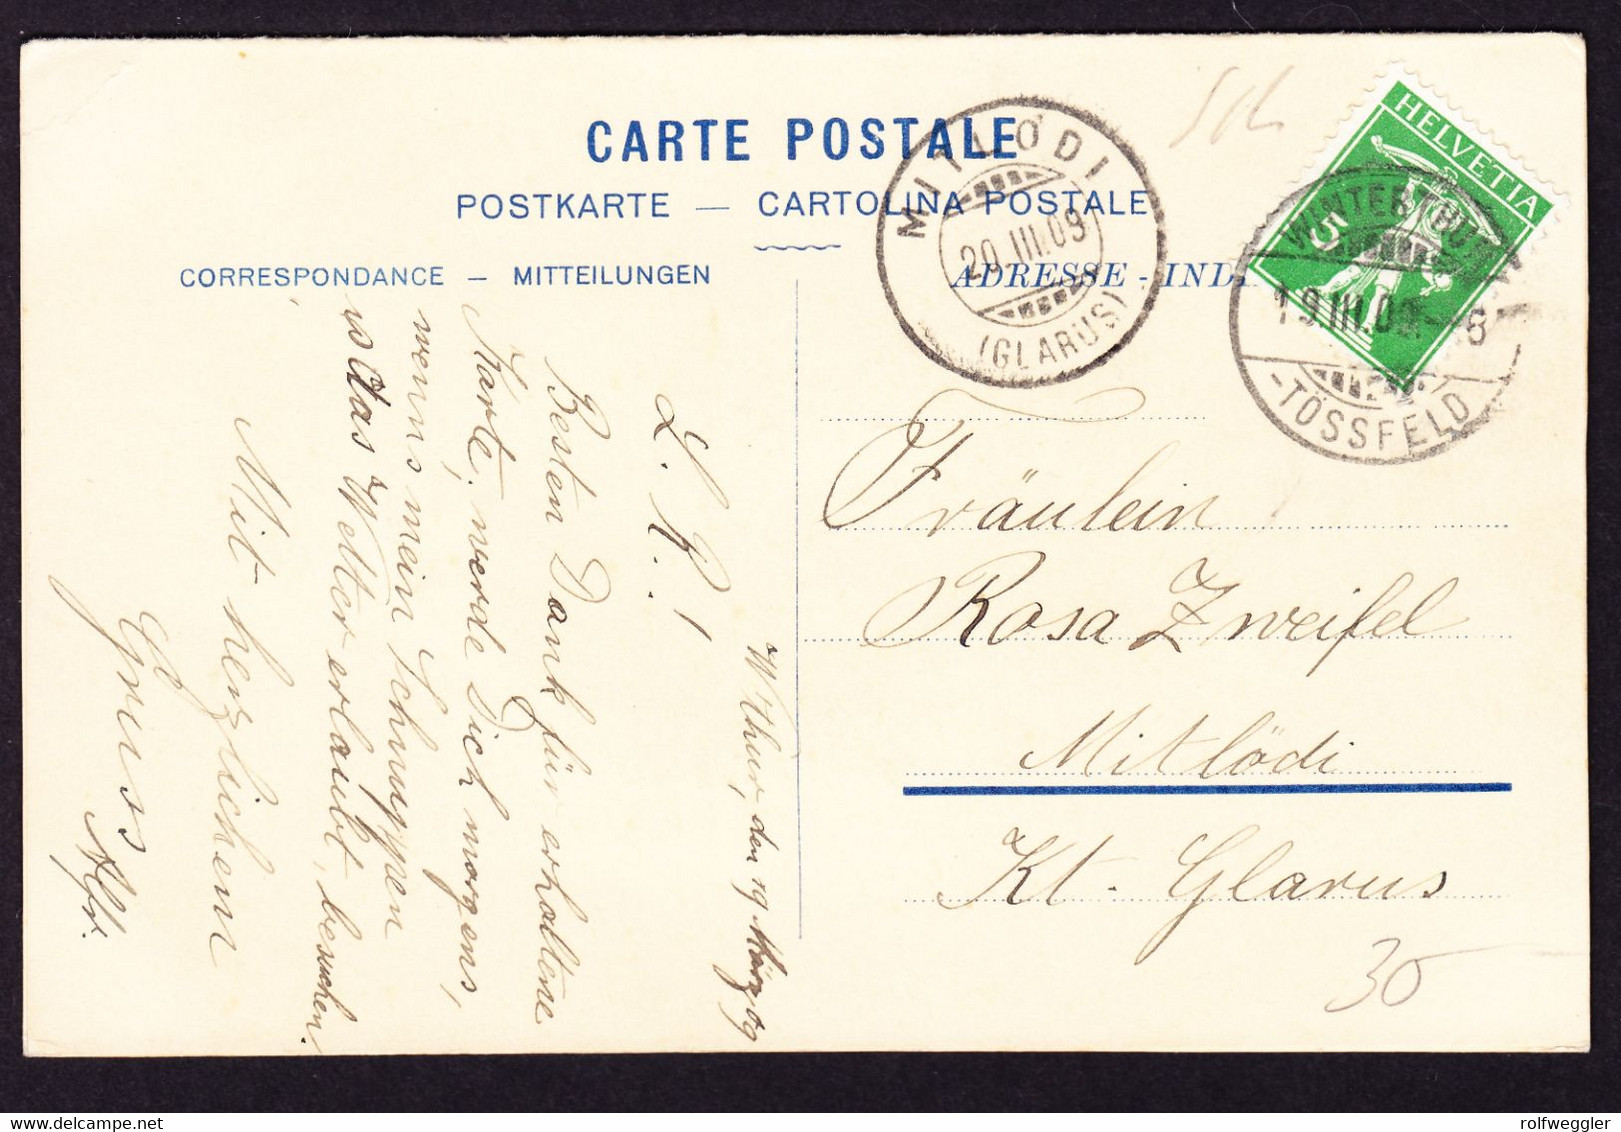 CARTE POSTALE
POSTKARTE — CARTOLINA POSTALE
CORRESPONDANCE – MITTEILUNGEN
ADRESSE - INDI
MITLÖDI
20.III.09
(GLARUS)
HELVETIA
5
WINTERTHUR
19.III.09
6
-TÖSSFELD
W'thur, den 19 März 09
L. R.!
Besten Dank für erhaltene
Karte, werde Dich morgens,
wenns mein Schnuppen
u. das Wetter erlaubt, besuchen.
Mit herzlichem
Gruss
Fräulein
Rosa Zweifel
Mitlödi
Kt. Glarus
30
delcampe.net
rolfweggler